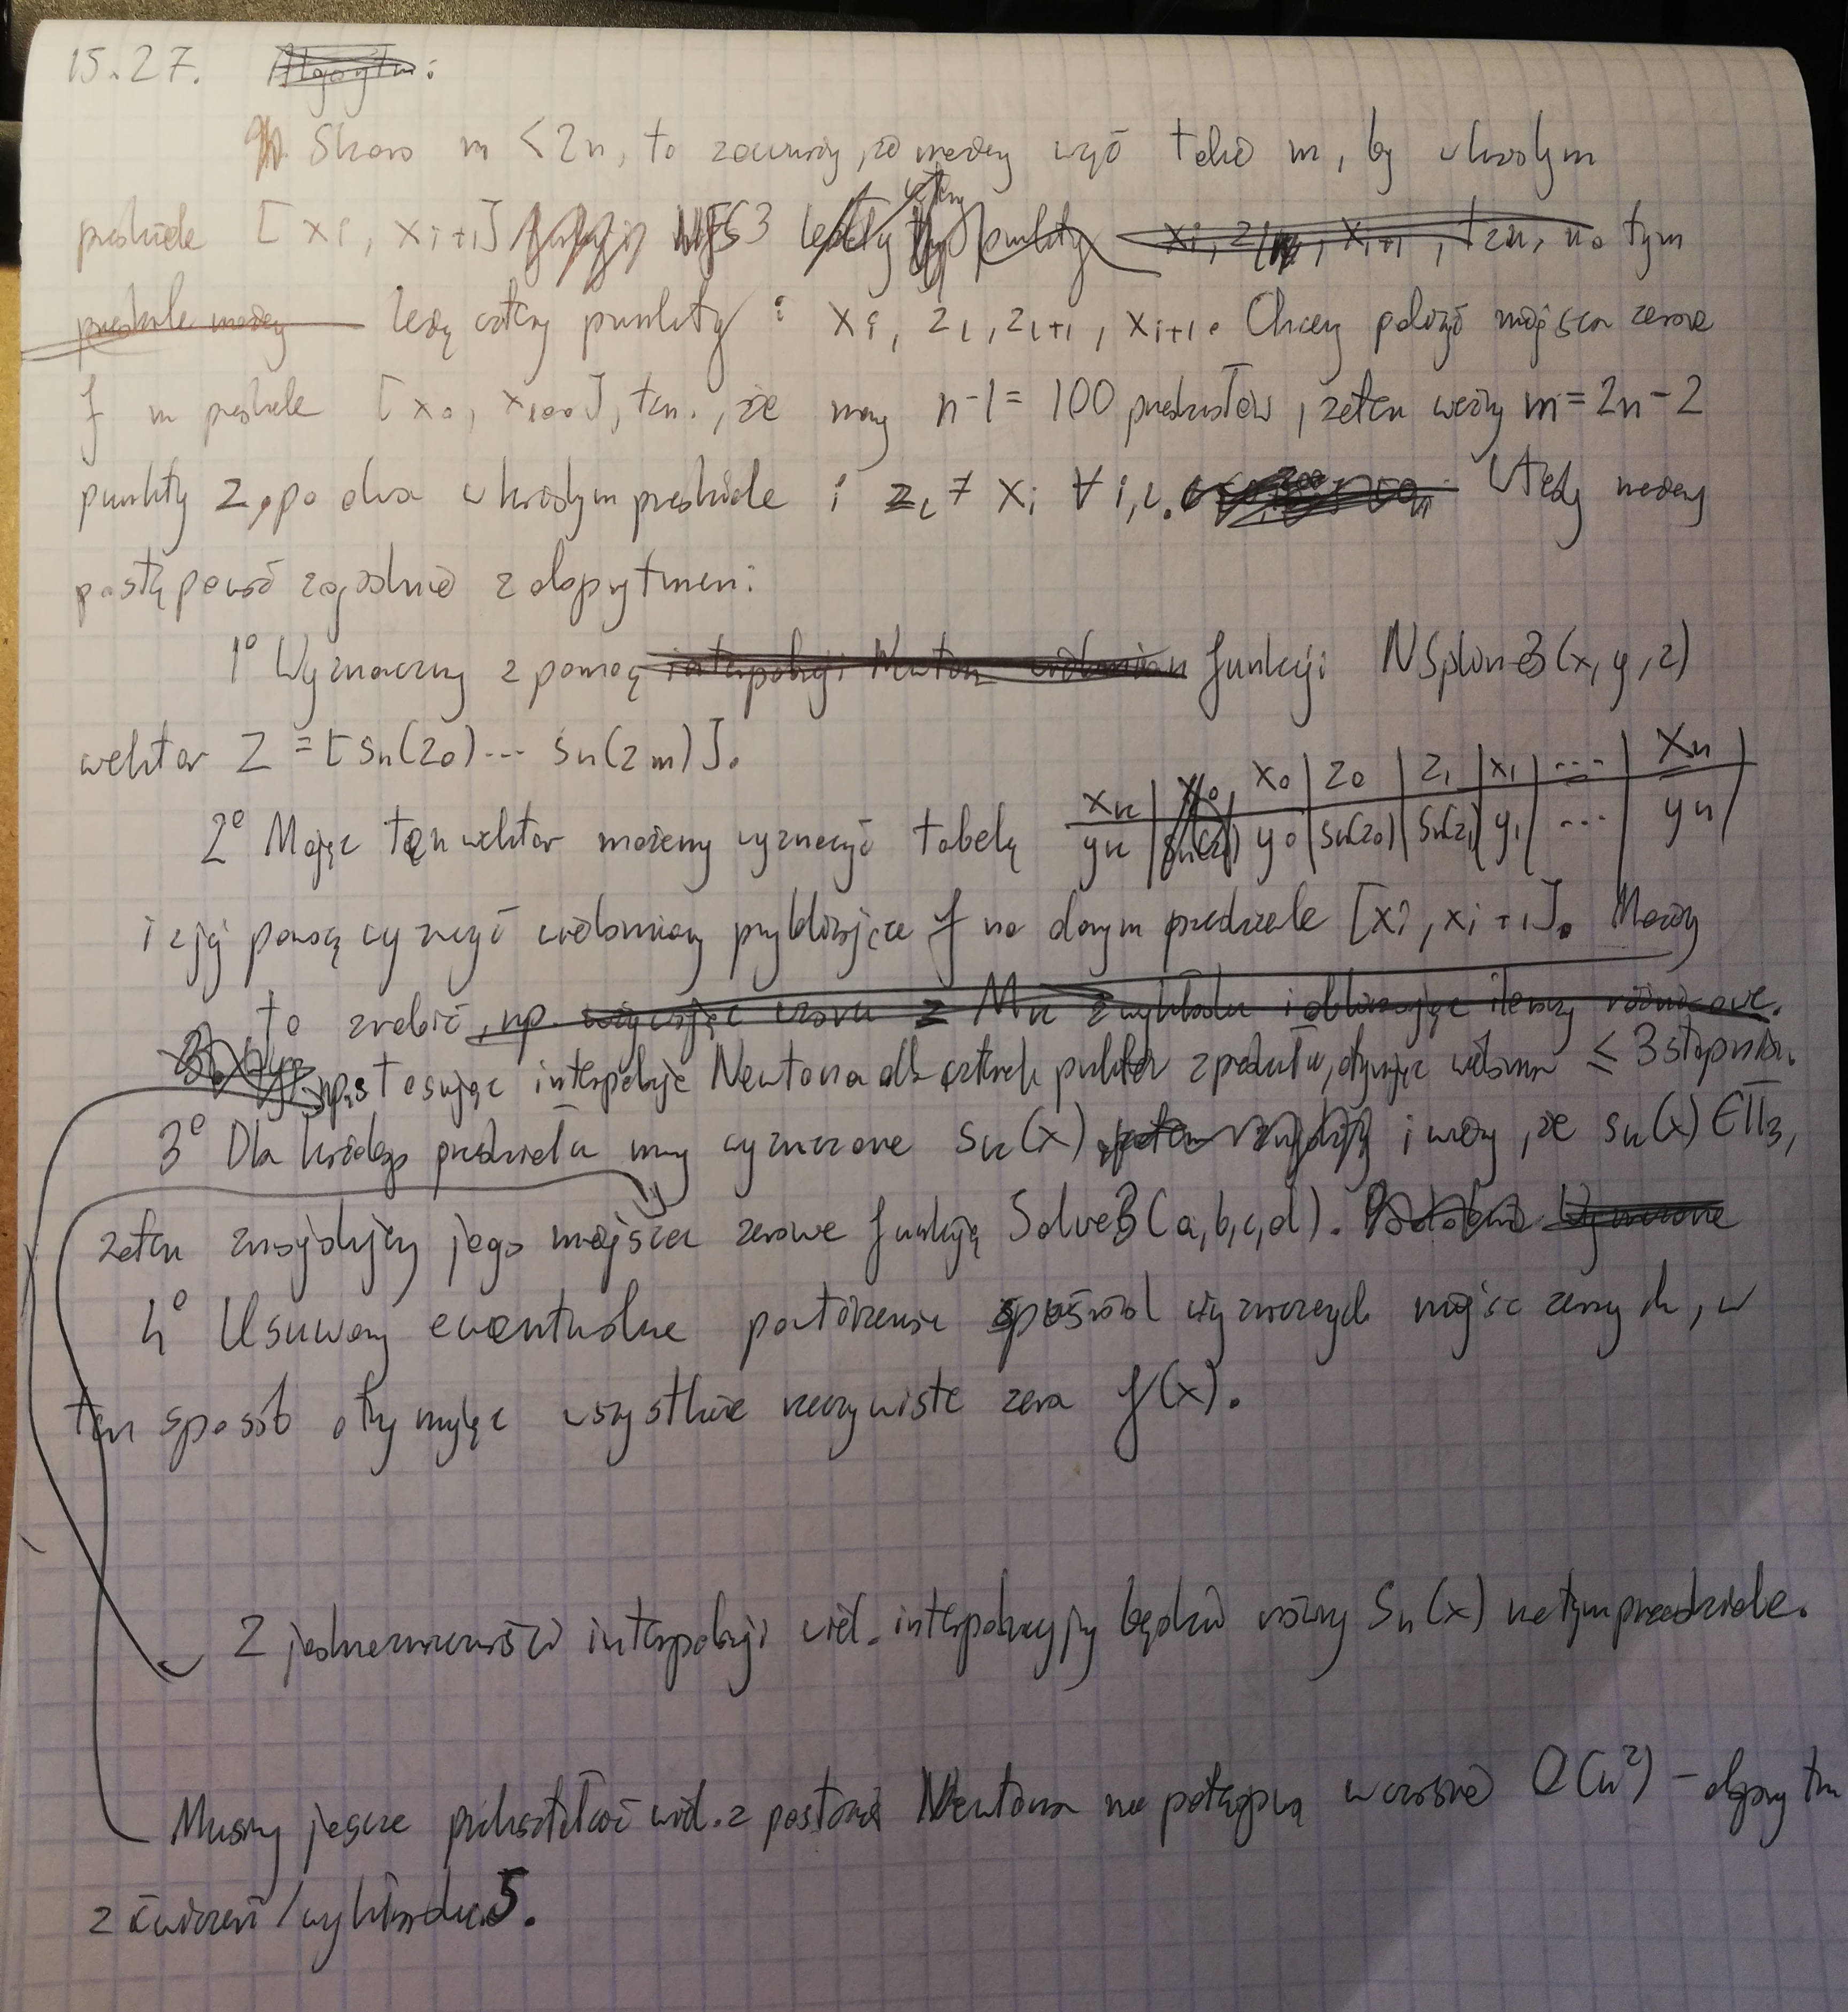 15.27.
Skoro m < 2n, to zauważmy, że możemy wziąć takie m, by w każdym
przedziale [xi, xi+1]
leżą cztery punkty: xi, zl, zl+1, xi+1. Chcemy położyć miejsca zerowe
f w przedziale [x0, x100], tzn., że mamy n-1 = 100 przedziałów, zatem weźmy m = 2n-2
punkty z, po dwa w każdym przedziale i zl ≠ xi ∀ i, l. Wtedy możemy
postępować zgodnie z algorytmem:
1° Wyznaczmy z pomocą funkcji NSpline3(x, y, z)
wektor Z = [sn(z0) ... sn(zm)].
2° Mając ten wektor możemy wyznaczyć tabelę xk | x0 | z0 | z1 | x1 | ... | xn
yk | y0 | sn(z0) | sn(z1) | y1 | ... | yn
i z jej pomocą wyznaczyć wielomiany przybliżające f na danym przedziale [xi, xi+1]. Możemy
to zrobić
np. stosując interpolację Newtona dla czterech punktów z przedziału, otrzymując wielomian ≤ 3 stopnia.
3° Dla każdego przedziału mamy wyznaczone sn(x) i wiemy, że sn(x) ∈ Π3,
zatem znajdujemy jego miejsca zerowe funkcją Solve3(a, b, c, d).
4° Usuwamy ewentualne powtórzenia spośród wyznaczonych miejsc zerowych, w
ten sposób otrzymując wszystkie rzeczywiste zera f(x).
Z jednoznaczności interpolacji wiel. interpolacyjny będzie równy Sn(x) na tym przedziale.
Musimy jeszcze przekształcić wiel. z postaci Newtona na potęgową w czasie O(n²) - algorytm
z ćwiczeń / wykładu 5.